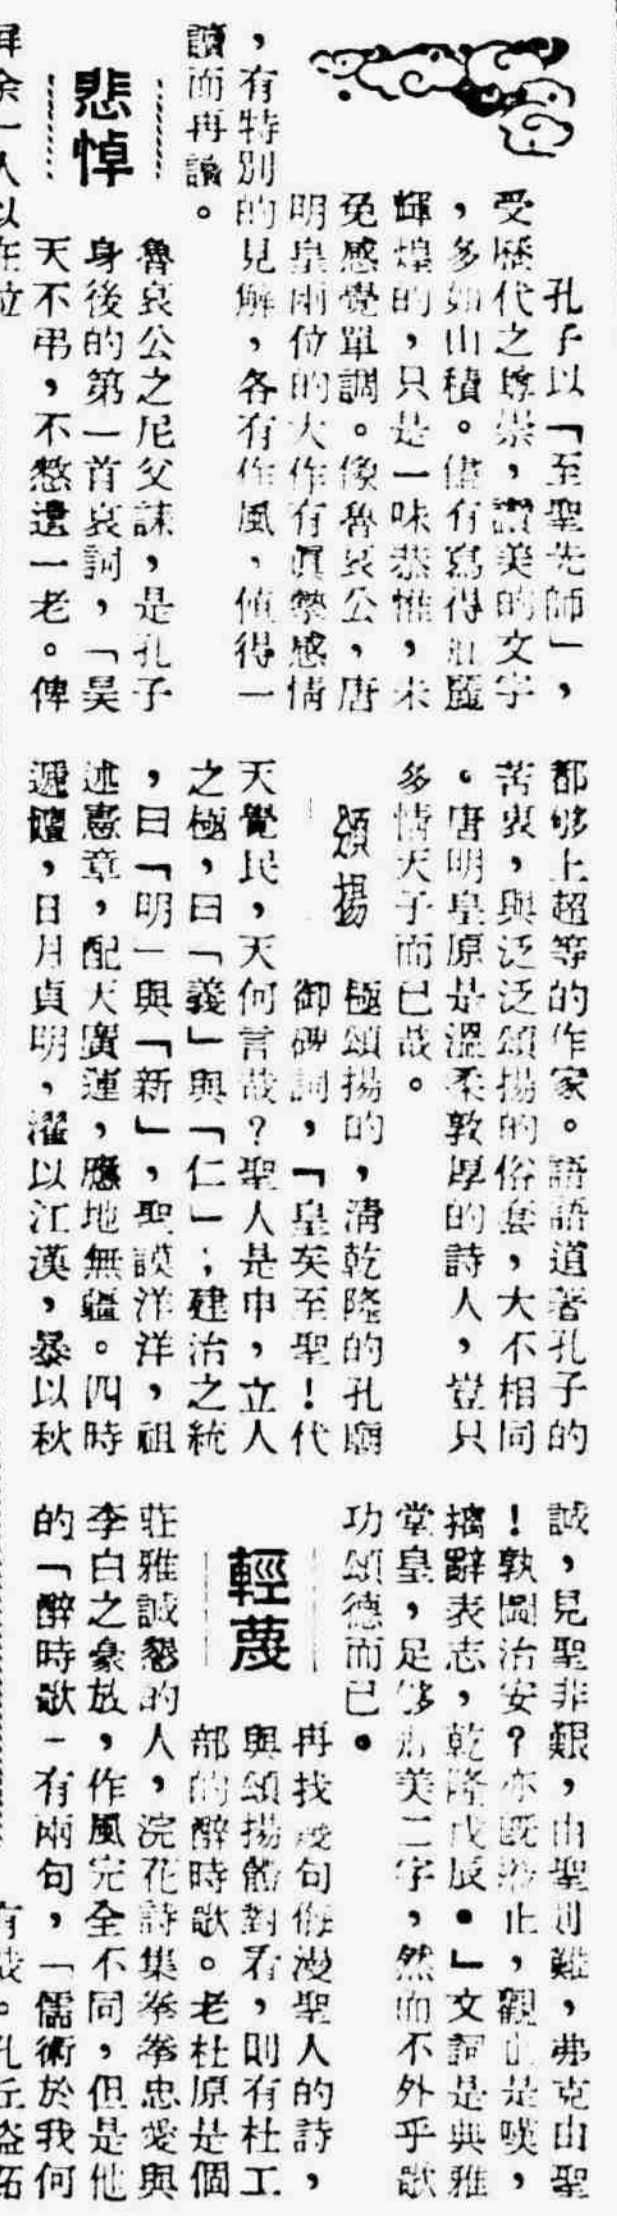 孔子以「至聖先師」，
受歷代之尊崇，讚美的文字
，多如山積。儘有寫得壯麗
輝煌的，只是一味恭惟，未
免感覺單調。像魯哀公，唐
明皇兩位的大作有眞摯感情
，有特別的見解，各有作風，値得一
讀而再讀。
悲悼
魯哀公之尼父誄，是孔子
身後的第一首哀詞，「昊
天不弔，不憗遺一老。俾
屏余一人以在位
都够上超等的作家。語語道著孔子的
苦衷，與泛泛頌揚的俗套，大不相同
。唐明皇原是溫柔敦厚的詩人，豈只
多情天子而已哉。
頌揚
極頌揚的，淸乾隆的孔廟
御碑詞，「皇矣至聖！代
天覺民，天何言哉？聖人是申，立人
之極，曰「義」與「仁」；建治之統
，曰「明」與「新」，聖謨洋洋，祖
述憲章，配天廣運，應地無疆。四時
遞嬗，日月貞明，濯以江漢，暴以秋
誠，見聖非艱，由聖則難，弗克由聖
！孰圖治安？亦旣 止，觀 是嘆，
摛辭表志，乾隆戊辰●」文詞是典雅
堂皇，足够 美二字，然而不外乎歌
功頌德而已●
輕蔑
再找幾句侮漫聖人的詩，
與頌揚 對看，則有杜工
部的醉時歌。老杜原是個
莊雅誠懇的人，浣花詩集拳拳忠愛與
李白之豪放，作風完全不同，但是他
的「醉時歌」有兩句，「儒術於我何
有哉。孔丘盜跖